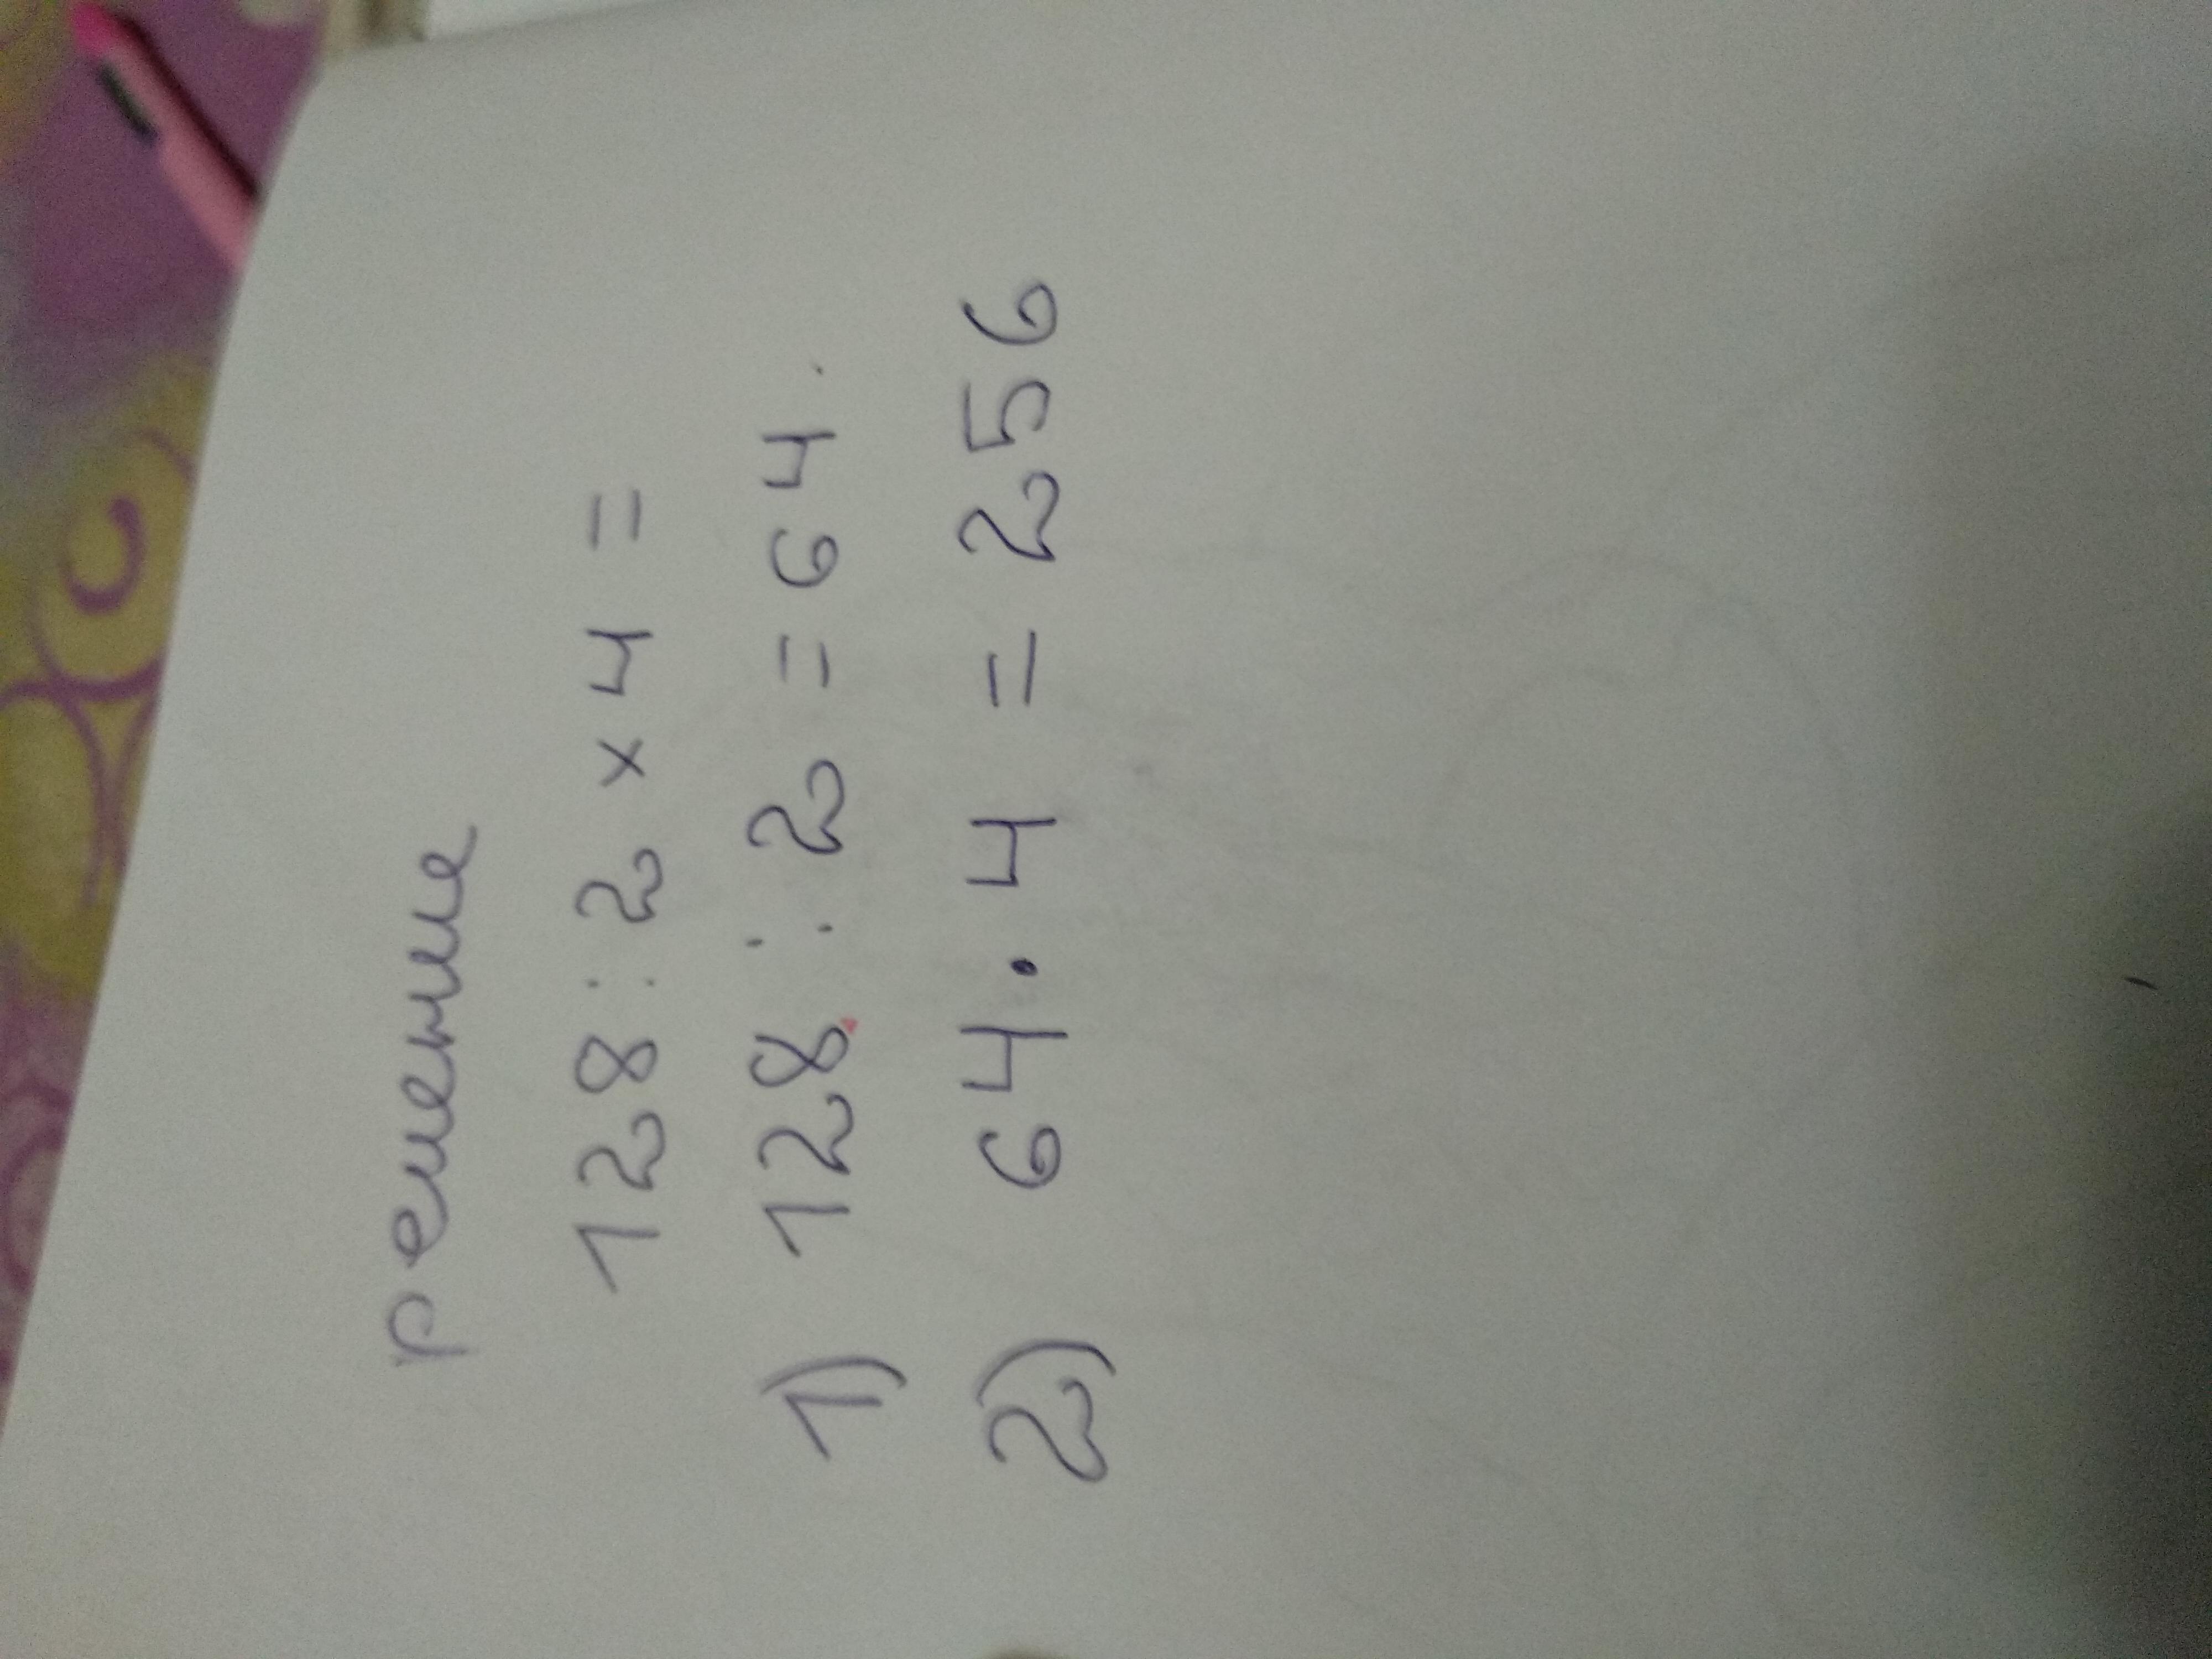 решение
128 : 2 × 4 =
1) 128 : 2 = 64.
2) 64 · 4 = 256